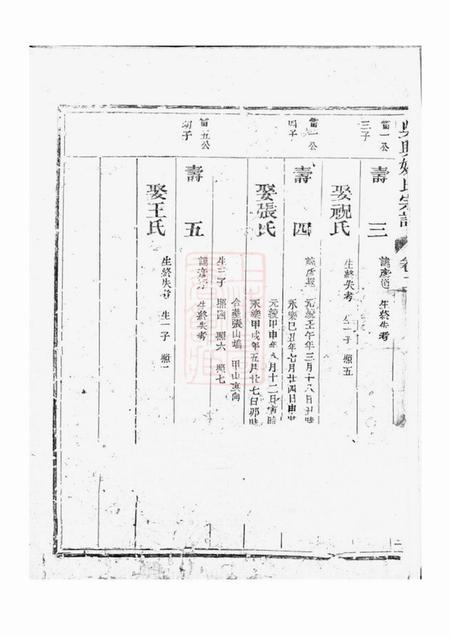 吳興姚氏宗譜 卷
富一公
三子
壽三
諱彥俗 生終失考
娶祝氏
生終失考 生一子 顯五
富一公
四子
壽四
元統壬午年三月十八日丑時
永樂己丑年七月廿四日申時
娶張氏
元統甲申年 月十二日寅時
永樂甲戌年五月廿七日卯時
合葬張山塢 甲山寅向
生三子 顯四 顯六 顯七
富五公
子
壽五
生終失考
娶王氏
生終失考 生一子 顯一
二